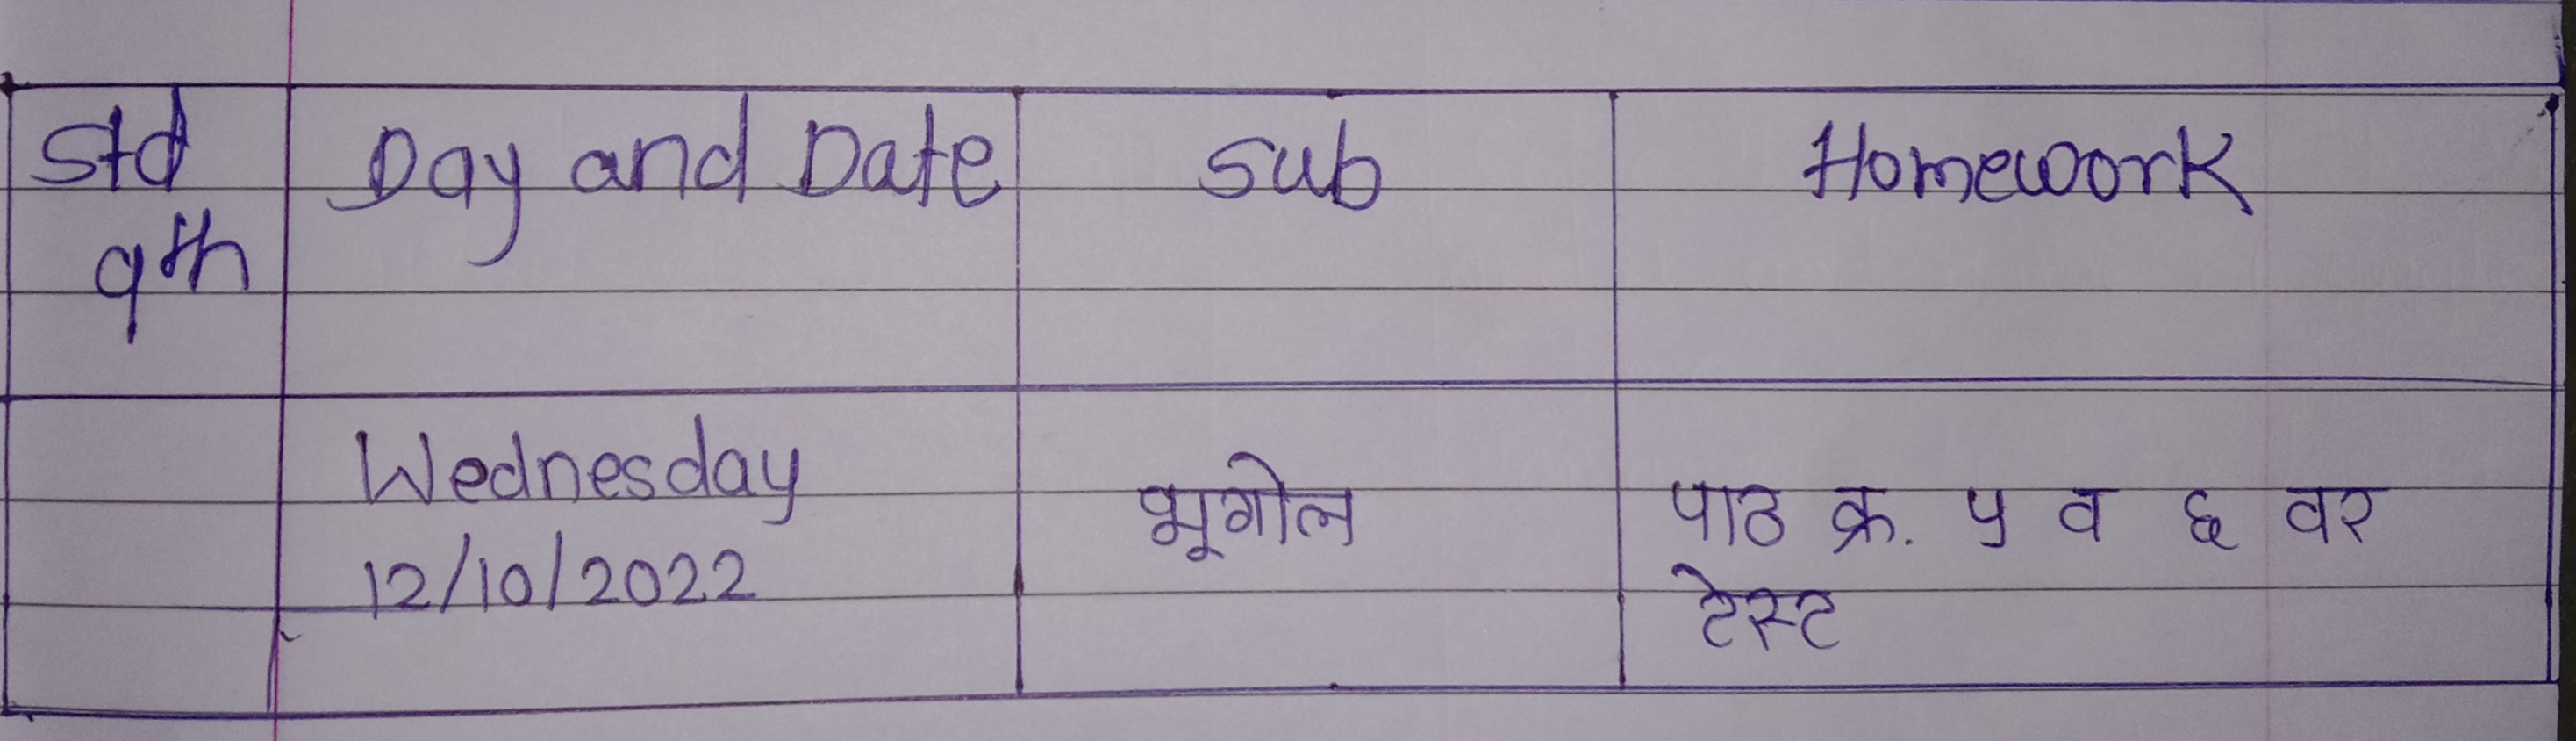 Std Day and Date Sub Homework
9th
Wednesday भूगोल पाठ क्र. ५ व ६ वर
12/10/2022 टेस्ट